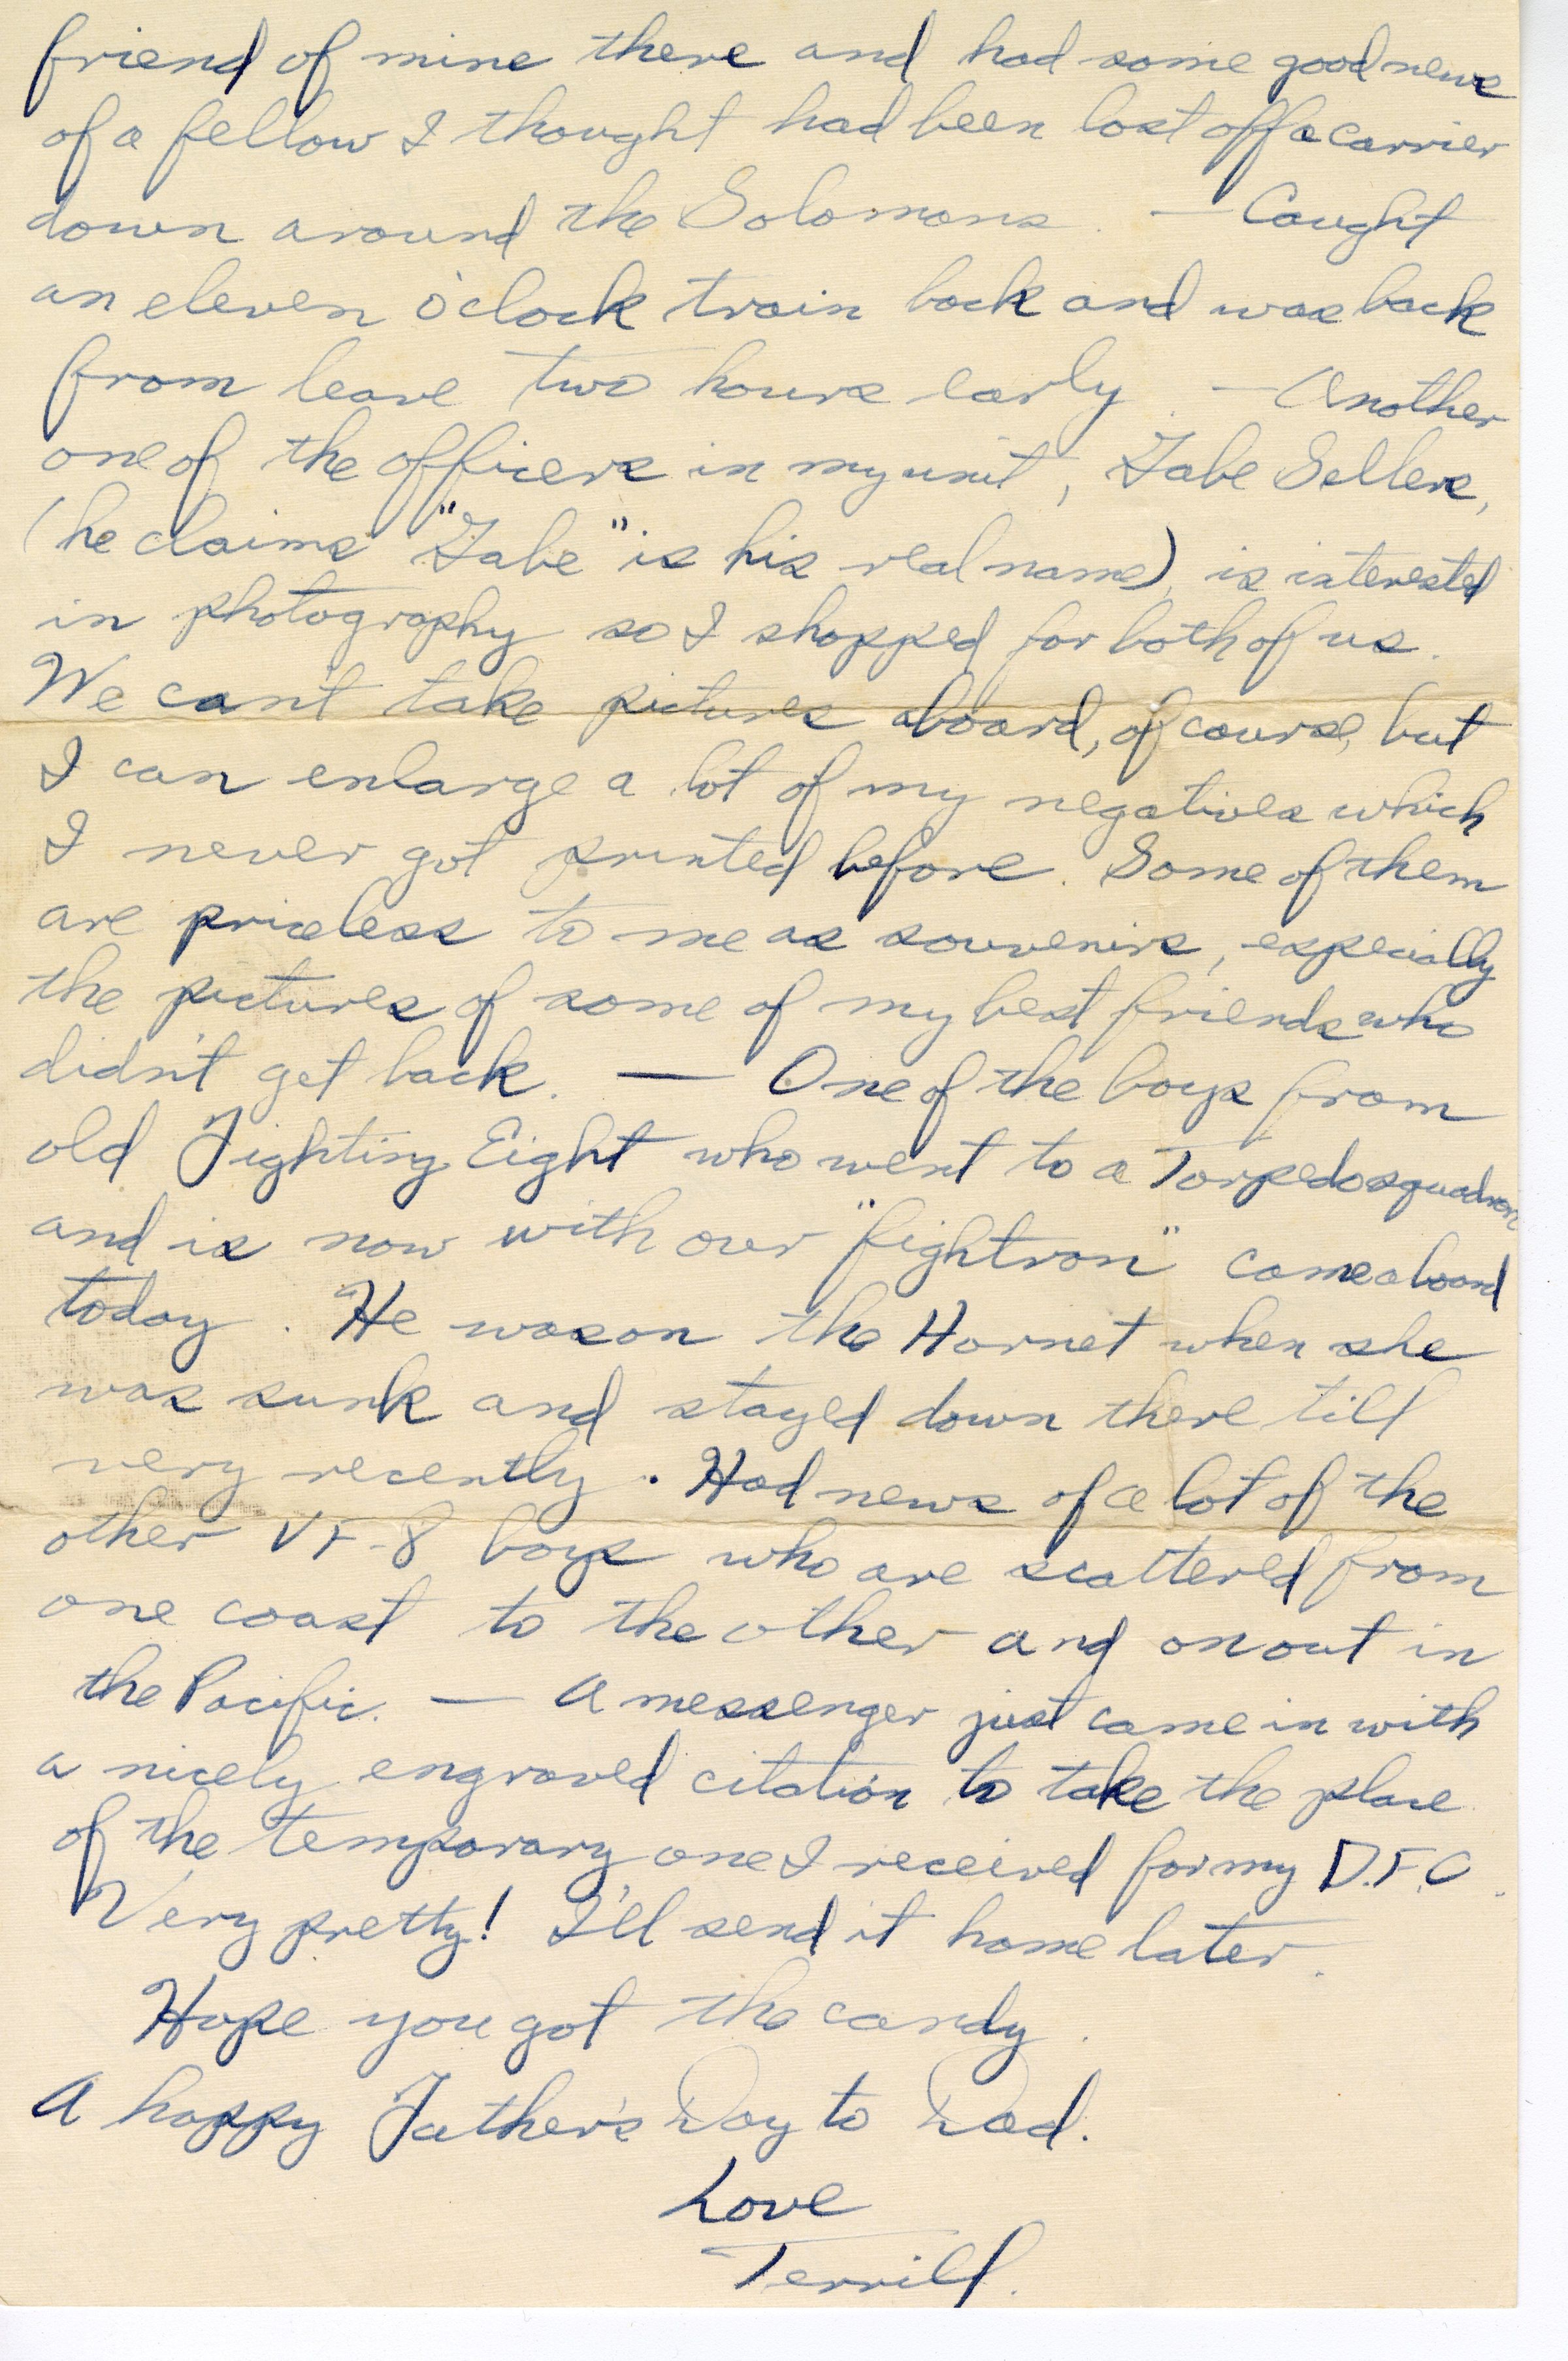 friend of mine there and had some good news
of a fellow I thought had been lost off a carrier
down around the Solomons. — Caught
an eleven o'clock train back and was back
from leave two hours early. — Another
one of the officers in my unit, Gabe Sellers,
(he claims "Gabe" is his real name), is interested
in photography so I shopped for both of us.
We can't take pictures aboard, of course, but
I can enlarge a lot of my negatives which
I never got printed before. Some of them
are priceless to me as souvenirs, especially
the pictures of some of my best friends who
didn't get back. — One of the boys from
old Fighting Eight who went to a Torpedo squadron
and is now with our "fightron" came aboard
today. He was on the Hornet when she
was sunk and stayed down there till
very recently. Had news of a lot of the
other VF-8 boys who are scattered from
one coast to the other and on out in
the Pacific. — A messenger just came in with
a nicely engraved citation to take the place
of the temporary one I received for my D.F.C.
Very pretty! I'll send it home later.
Hope you got the candy.
A happy Father's Day to Dad.
Love
Terrill.